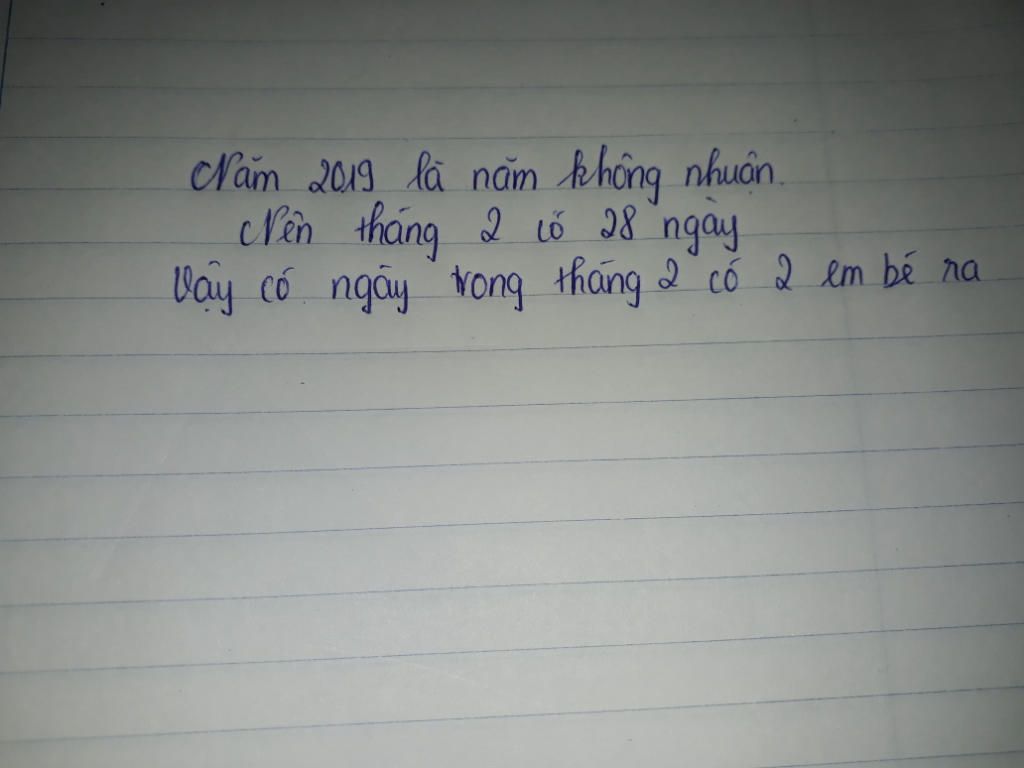 Năm 2019 là năm không nhuận.
Nên tháng 2 có 28 ngày
Vậy có ngày trong tháng 2 có 2 em bé ra